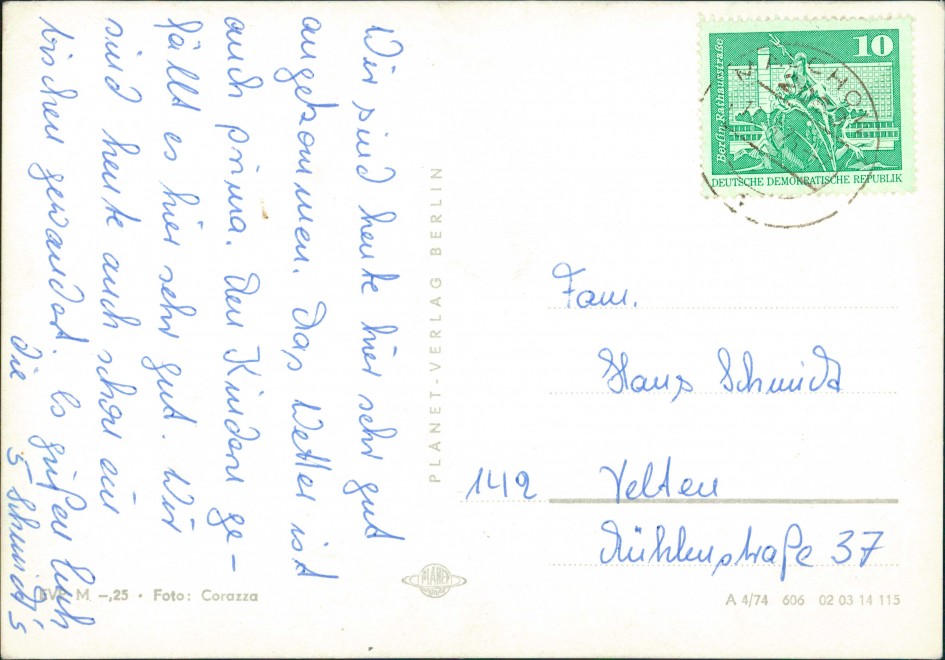 Wir sind heute hier sehr gut
angekommen. Das Wetter ist
auch prima. Den Kindern ge-
fällt es hier sehr gut. Wir
sind heute auch schon ein
bischen gewandert. Es grüßen Euch
die 5 Schmidt's
PLANET-VERLAG BERLIN
10
Berlin, Rathausstraße
DEUTSCHE DEMOKRATISCHE REPUBLIK
Fam.
Hans Schmidt
142 Velten
Mühlenstraße 37
PLANET
EVP M –,25 · Foto: Corazza
A 4/74 606 02 03 14 115